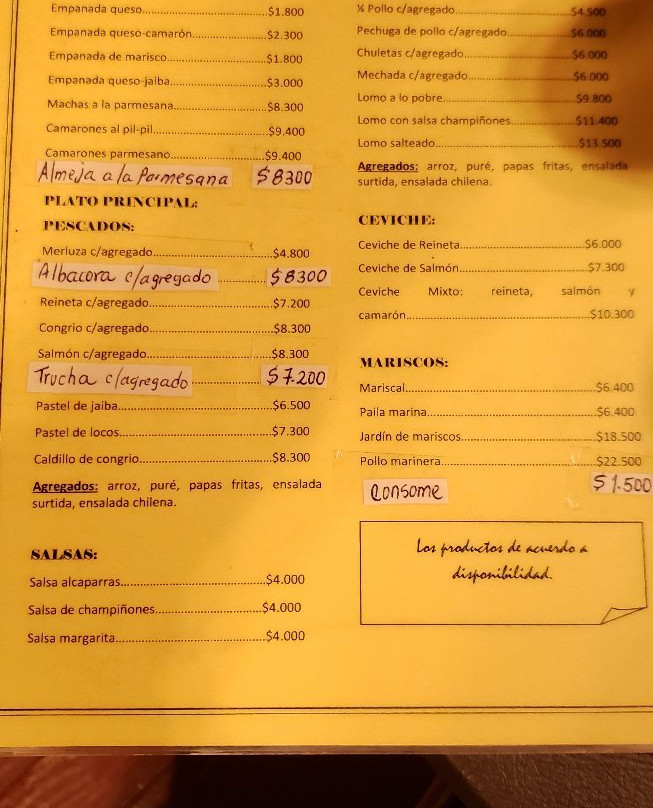 Empanada queso.....$1.800
Empanada queso-camarón.....$2.300
Empanada de marisco.....$1.800
Empanada queso-jaiba.....$3.000
Machas a la parmesana.....$8.300
Camarones al pil-pil.....$9.400
Camarones parmesano.....$9.400
Almeja a la Parmesana $8300
PLATO PRINCIPAL:
PESCADOS:
Merluza c/agregado.....$4.800
Albacora c/agregado.....$8300
Reineta c/agregado.....$7.200
Congrio c/agregado.....$8.300
Salmón c/agregado.....$8.300
Trucha c/agregado.....$7.200
Pastel de jaiba.....$6.500
Pastel de locos.....$7.300
Caldillo de congrio.....$8.300
Agregados: arroz, puré, papas fritas, ensalada
surtida, ensalada chilena.
SALSAS:
Salsa alcaparras.....$4.000
Salsa de champiñones.....$4.000
Salsa margarita.....$4.000
¼ Pollo c/agregado.....$4.500
Pechuga de pollo c/agregado.....$6.000
Chuletas c/agregado.....$6.000
Mechada c/agregado.....$6.000
Lomo a lo pobre.....$9.800
Lomo con salsa champiñones.....$11.400
Lomo salteado.....$13.500
Agregados: arroz, puré, papas fritas, ensalada
surtida, ensalada chilena.
CEVICHE:
Ceviche de Reineta.....$6.000
Ceviche de Salmón.....$7.300
Ceviche Mixto: reineta, salmón y
camarón.....$10.300
MARISCOS:
Mariscal.....$6.400
Paila marina.....$6.400
Jardín de mariscos.....$18.500
Pollo marinera.....$22.500
Consome $1.500
Los productos de acuerdo a
disponibilidad.